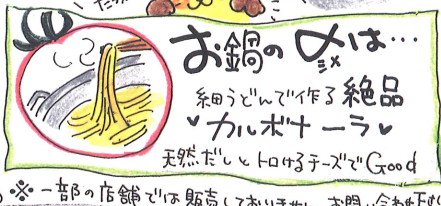 お鍋の〆は…
シメ
細うどんで作る絶品
♥カルボナーラ♥
天然だしとトロけるチーズでGood
※一部の店舗では販売しておりません。お問い合わせ